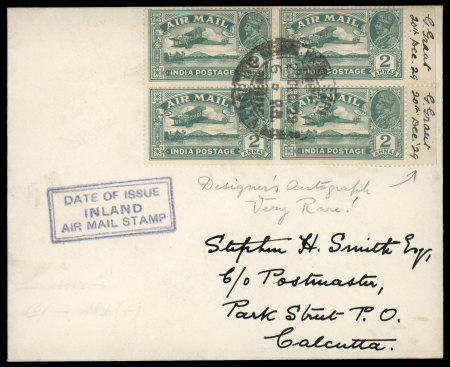 AIR MAIL
INDIA POSTAGE
2
ANNAS
AIR MAIL
INDIA POSTAGE
2
ANNAS
G. Grant
20th Dec. 29
AIR MAIL
INDIA POSTAGE
2
ANNAS
AIR MAIL
INDIA POSTAGE
2
ANNAS
G. Grant
20th Dec. '29
Designer's Autograph
Very Rare!
DATE OF ISSUE
INLAND
AIR MAIL STAMP
Stephen H. Smith Esq,
C/o Postmaster,
Park Street P.O.
Calcutta.